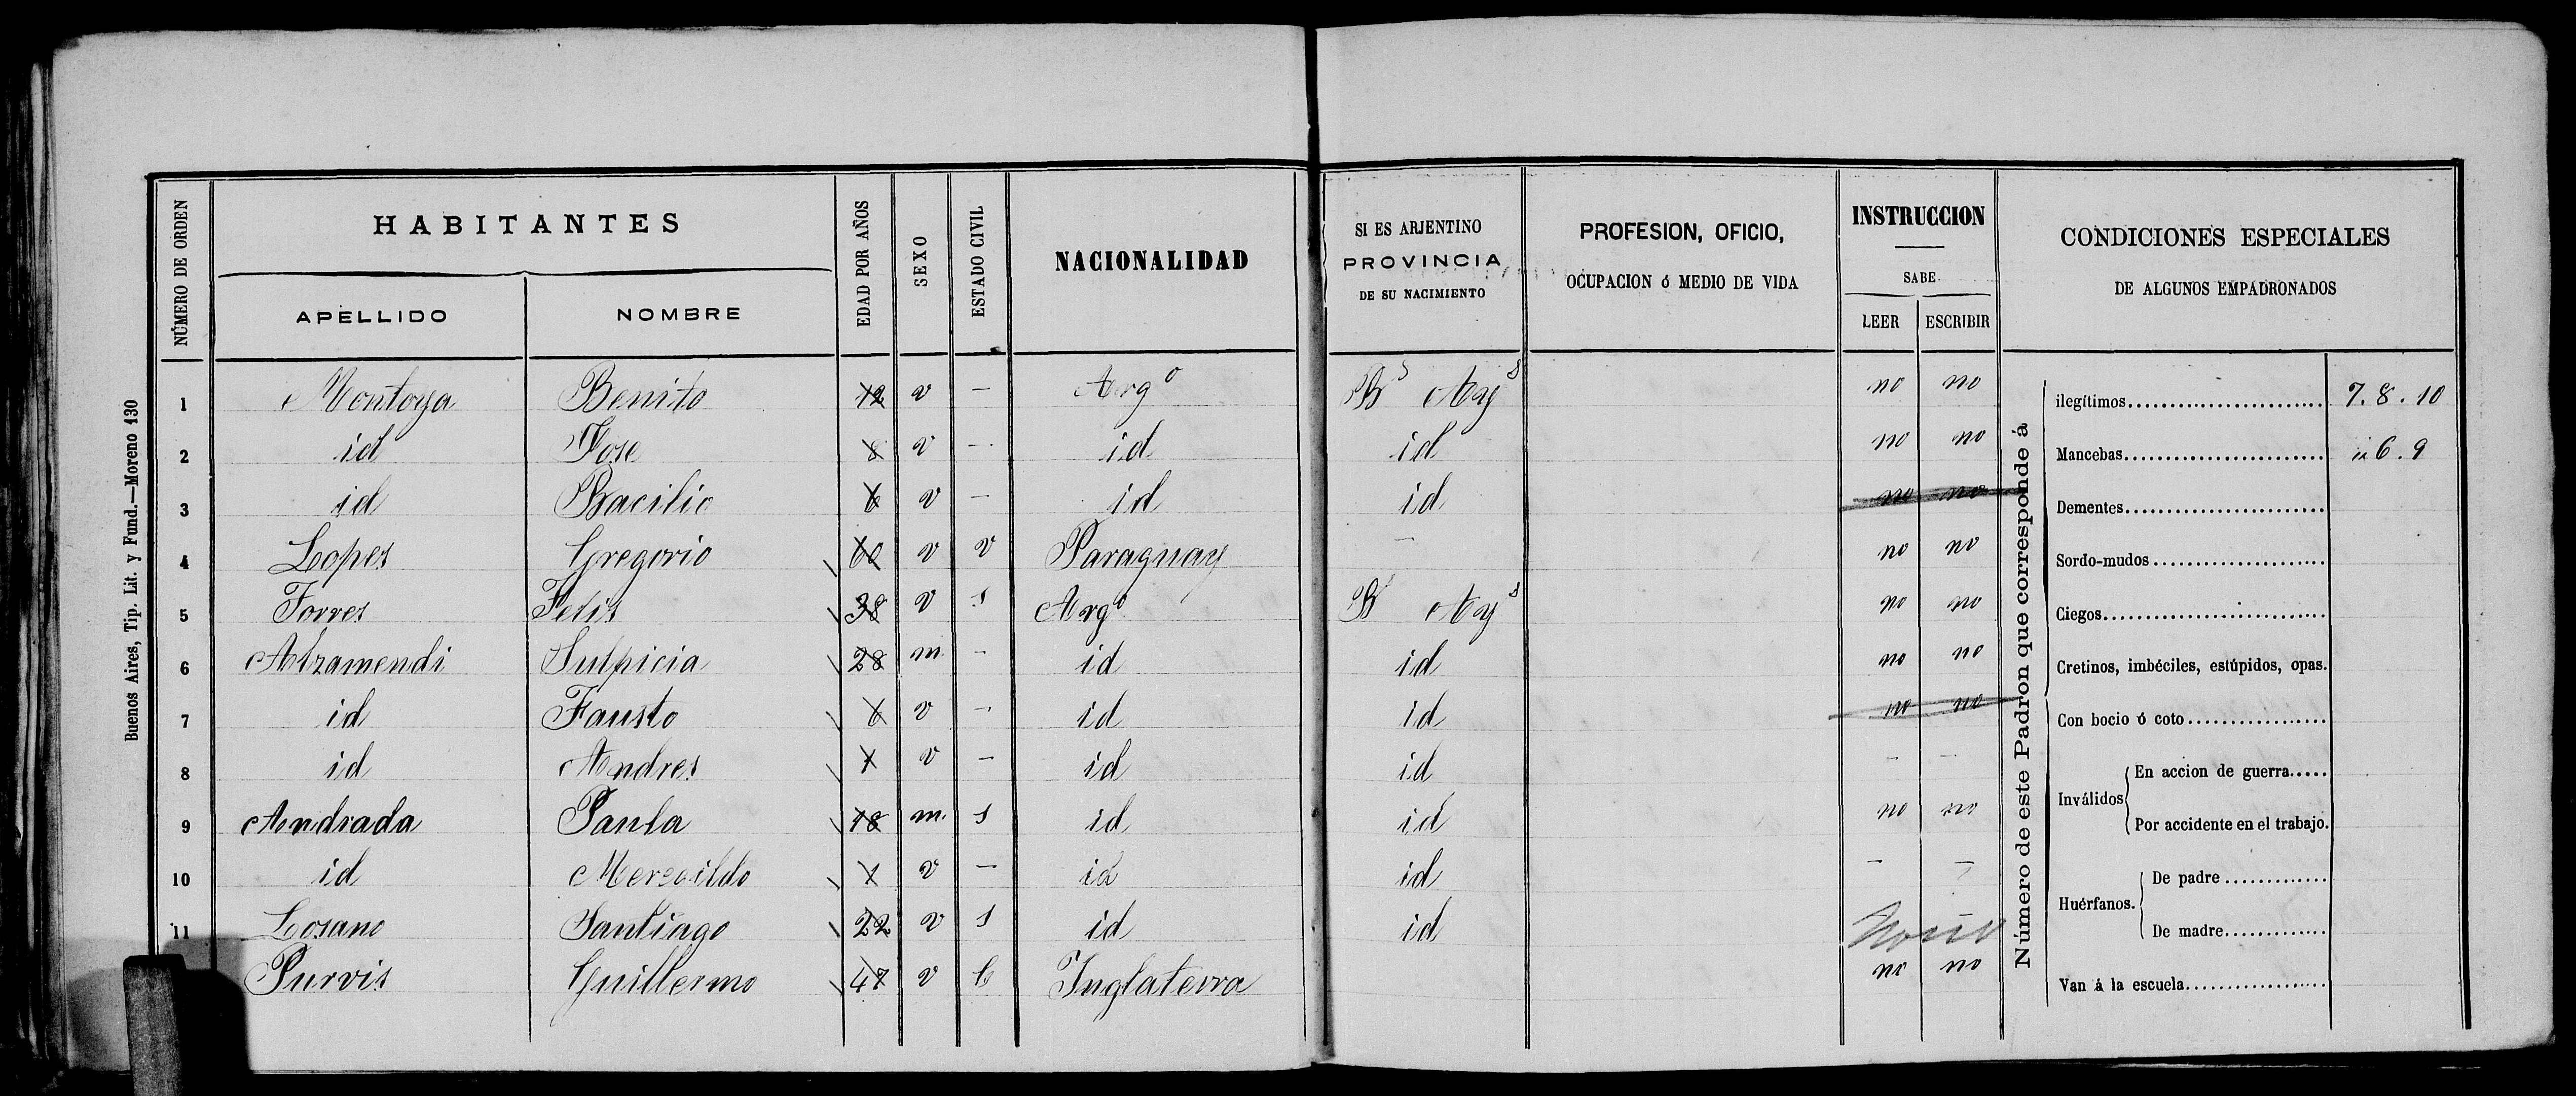 Buenos Aires, Tip. Lit. y Fund.—Moreno 130
NÚMERO DE ORDEN
HABITANTES
APELLIDO NOMBRE
EDAD POR AÑOS
SEXO
ESTADO CIVIL
NACIONALIDAD
SI ES ARJENTINO
PROVINCIA
DE SU NACIMIENTO
PROFESION, OFICIO,
OCUPACION ó MEDIO DE VIDA
INSTRUCCION
SABE
LEER ESCRIBIR
CONDICIONES ESPECIALES
DE ALGUNOS EMPADRONADOS
1 Montoya Benito 12 v — Argº Bs Ays no no
2 id Jose 8 v — id id no no
3 id Bacilio 6 v — id id no no
4 Lopes Gregorio 60 v v Paraguay — no no
5 Torres Felis 38 v s Argº Bs Ays no no
6 Alzamendi Sulpicia 28 m. - id id no no
7 id Fausto 6 v - id id no no
8 id Andres v — id id - -
9 Andrada Paula 18 m. s id id no no
10 id 1 v — id id — —
11 Losano Santiago 22 v s id id
Purvis Guillermo 47 v c Inglaterra no no
Número de este Padron que corresponde á
ilegítimos 7. 8. 10
Mancebas 6. 9
Dementes
Sordo-mudos
Ciegos
Cretinos, imbéciles, estúpidos, opas.
Con bocio ó coto
Inválidos
En accion de guerra
Por accidente en el trabajo.
Huérfanos.
De padre
De madre
Van á la escuela